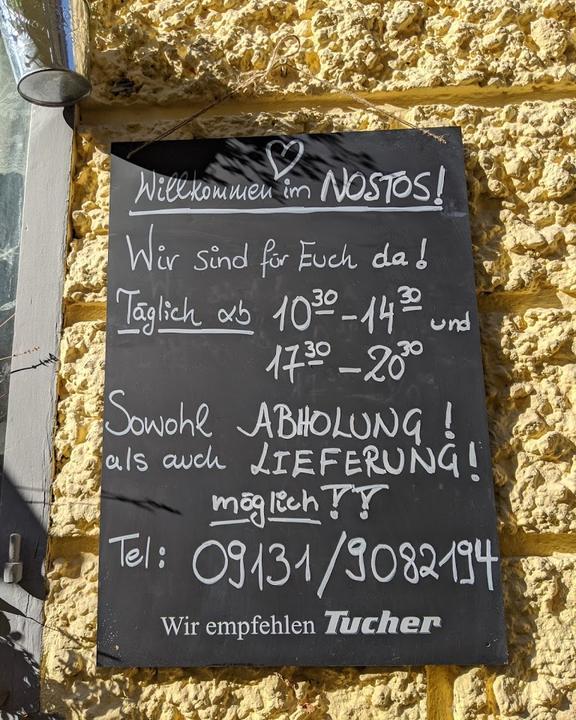 Willkommen im NOSTOS!
Wir sind für Euch da!
Täglich ab 10³⁰-14³⁰ und
17³⁰-20³⁰
Sowohl ABHOLUNG!
als auch LIEFERUNG!
möglich!!
Tel: 09131/9082194
Wir empfehlen Tucher